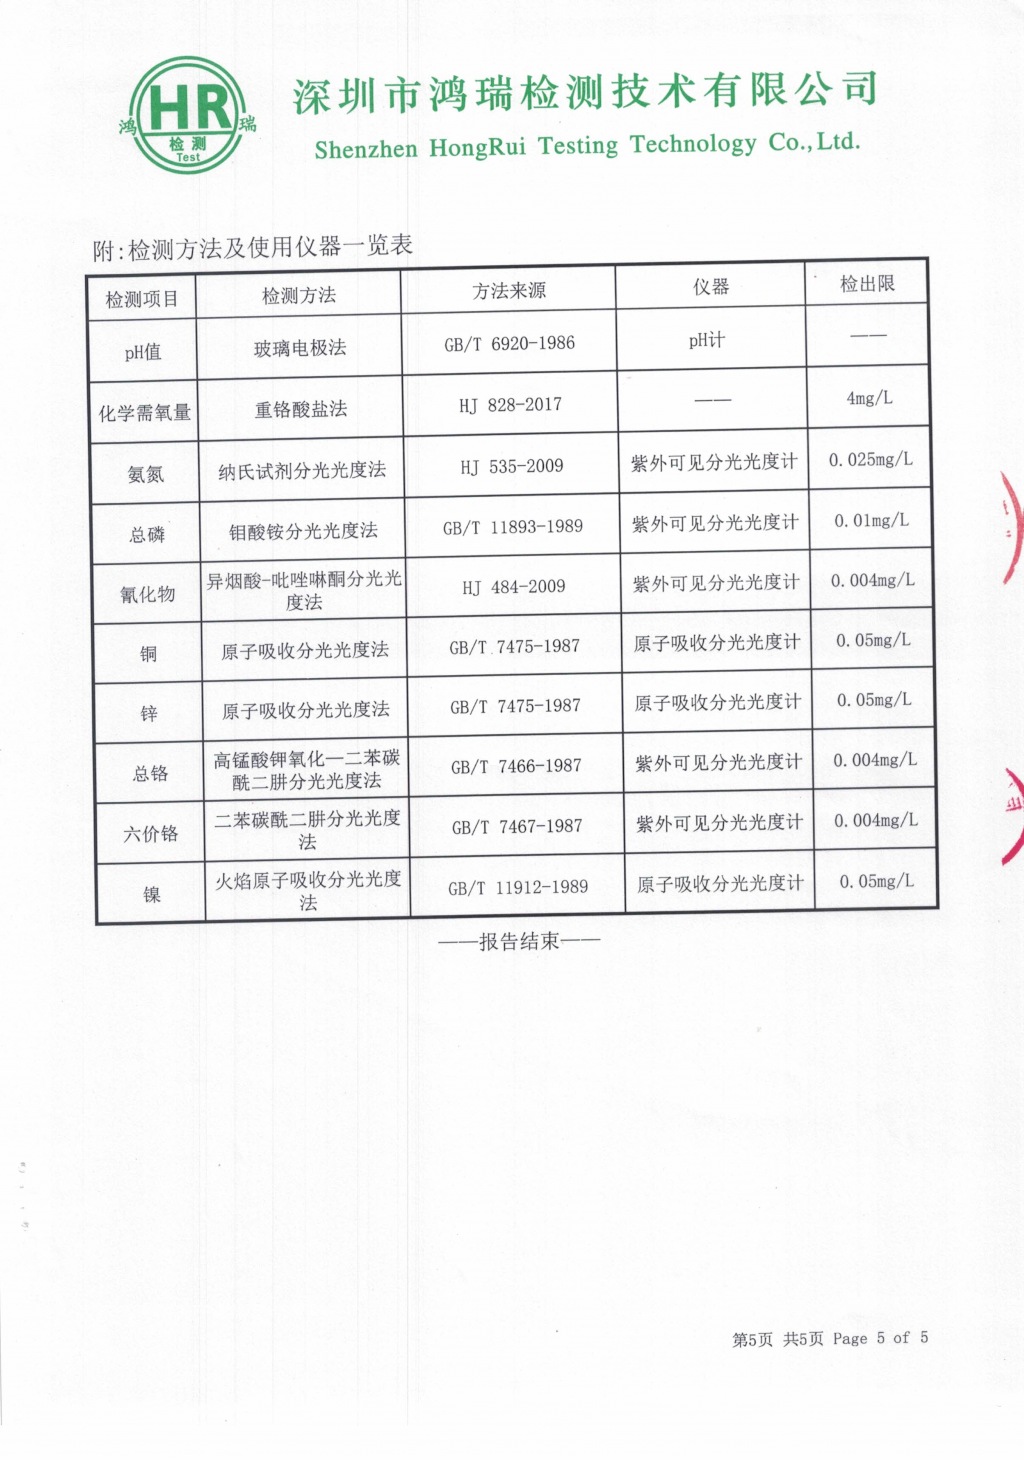 HR
鸿 瑞
检测
Test
深圳市鸿瑞检测技术有限公司
Shenzhen HongRui Testing Technology Co.,Ltd.
附:检测方法及使用仪器一览表
检测项目 检测方法 方法来源 仪器 检出限
pH值 玻璃电极法 GB/T 6920-1986 pH计 ——
化学需氧量 重铬酸盐法 HJ 828-2017 —— 4mg/L
氨氮 纳氏试剂分光光度法 HJ 535-2009 紫外可见分光光度计 0.025mg/L
总磷 钼酸铵分光光度法 GB/T 11893-1989 紫外可见分光光度计 0.01mg/L
氰化物 异烟酸-吡唑啉酮分光光 HJ 484-2009 紫外可见分光光度计 0.004mg/L
度法
铜 原子吸收分光光度法 GB/T 7475-1987 原子吸收分光光度计 0.05mg/L
锌 原子吸收分光光度法 GB/T 7475-1987 原子吸收分光光度计 0.05mg/L
总铬 高锰酸钾氧化—二苯碳 GB/T 7466-1987 紫外可见分光光度计 0.004mg/L
酰二肼分光光度法
六价铬 二苯碳酰二肼分光光度 GB/T 7467-1987 紫外可见分光光度计 0.004mg/L
法
镍 火焰原子吸收分光光度 GB/T 11912-1989 原子吸收分光光度计 0.05mg/L
法
——报告结束——
第5页 共5页 Page 5 of 5